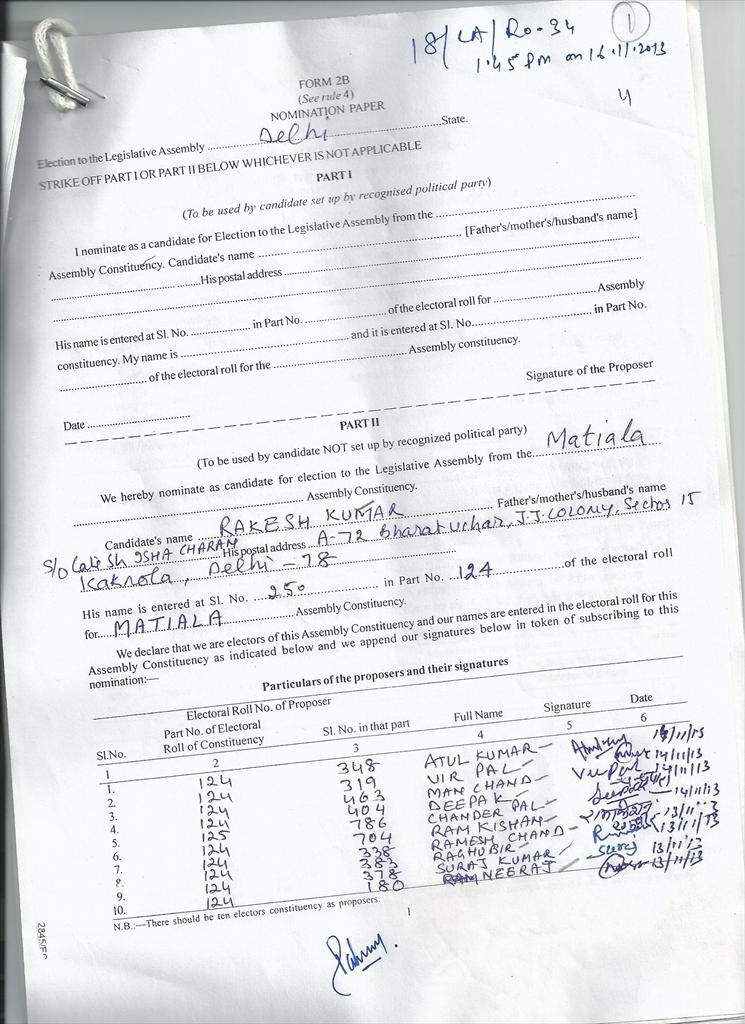 18/LA/Ro-34
1
1.45 Pm on 16.11.2013
4
FORM 2B
(See rule 4)
NOMINATION PAPER
Election to the Legislative Assembly Delhi State.
STRIKE OFF PART I OR PART II BELOW WHICHEVER IS NOT APPLICABLE
PART I
(To be used by candidate set up by recognised political party)
I nominate as a candidate for Election to the Legislative Assembly from the
Assembly Constituency. Candidate's name [Father's/mother's/husband's name]
His postal address
His name is entered at Sl. No. in Part No. of the electoral roll for Assembly
constituency. My name is and it is entered at Sl. No. in Part No.
of the electoral roll for the Assembly constituency.
Signature of the Proposer
Date
PART II
(To be used by candidate NOT set up by recognized political party)
We hereby nominate as candidate for election to the Legislative Assembly from the Matiala
Assembly Constituency.
Candidate's name RAKESH KUMAR Father's/mother's/husband's name
S/O Late Sh ISHA CHARAN His postal address A-72 Bharat vihar, J.J. COLONY, Sector 15
Kakrola, Delhi - 78
His name is entered at Sl. No. 250 in Part No. 124 of the electoral roll
for MATIALA Assembly Constituency.
We declare that we are electors of this Assembly Constituency and our names are entered in the electoral roll for this
Assembly Constituency as indicated below and we append our signatures below in token of subscribing to this
nomination:—
Particulars of the proposers and their signatures
Electoral Roll No. of Proposer
Sl.No. Part No. of Electoral Roll of Constituency Sl. No. in that part Full Name Signature Date
1 2 3 4 5 6
1. 124 348 ATUL KUMAR 14/11/13
2. 124 319 VIR PAL VirPal 14/11/13
3. 124 463 MAN CHAND 14/11/13
4. 124 404 DEEPAK Deepak 14/11/13
5. 125 786 CHANDER PAL
6. 124 704 RAM KISHAN 13/11/13
7. 124 338 RAMESH CHAND 13/11/13
8. 124 383 RAGHUBIR
9. 124 378 SURAJ KUMAR Suraj 13/11/13
10. 124 180 NEERAJ 13/11/13
N.B.:—There should be ten electors constituency as proposers.